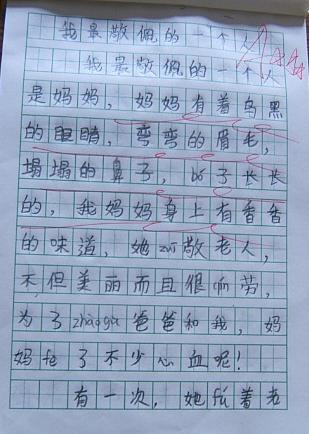 我最敬佩的一个人
我最敬佩的一个人
是妈妈，妈妈有着乌黑
的眼睛，弯弯的眉毛，
塌塌的鼻子，bó子长长
的，我妈妈身上有香香
的味道，她zūn敬老人，
不但美丽而且很qín劳，
为了zhàogù爸爸和我，妈
妈fèi了不少心血呢！
有一次，她fú着老